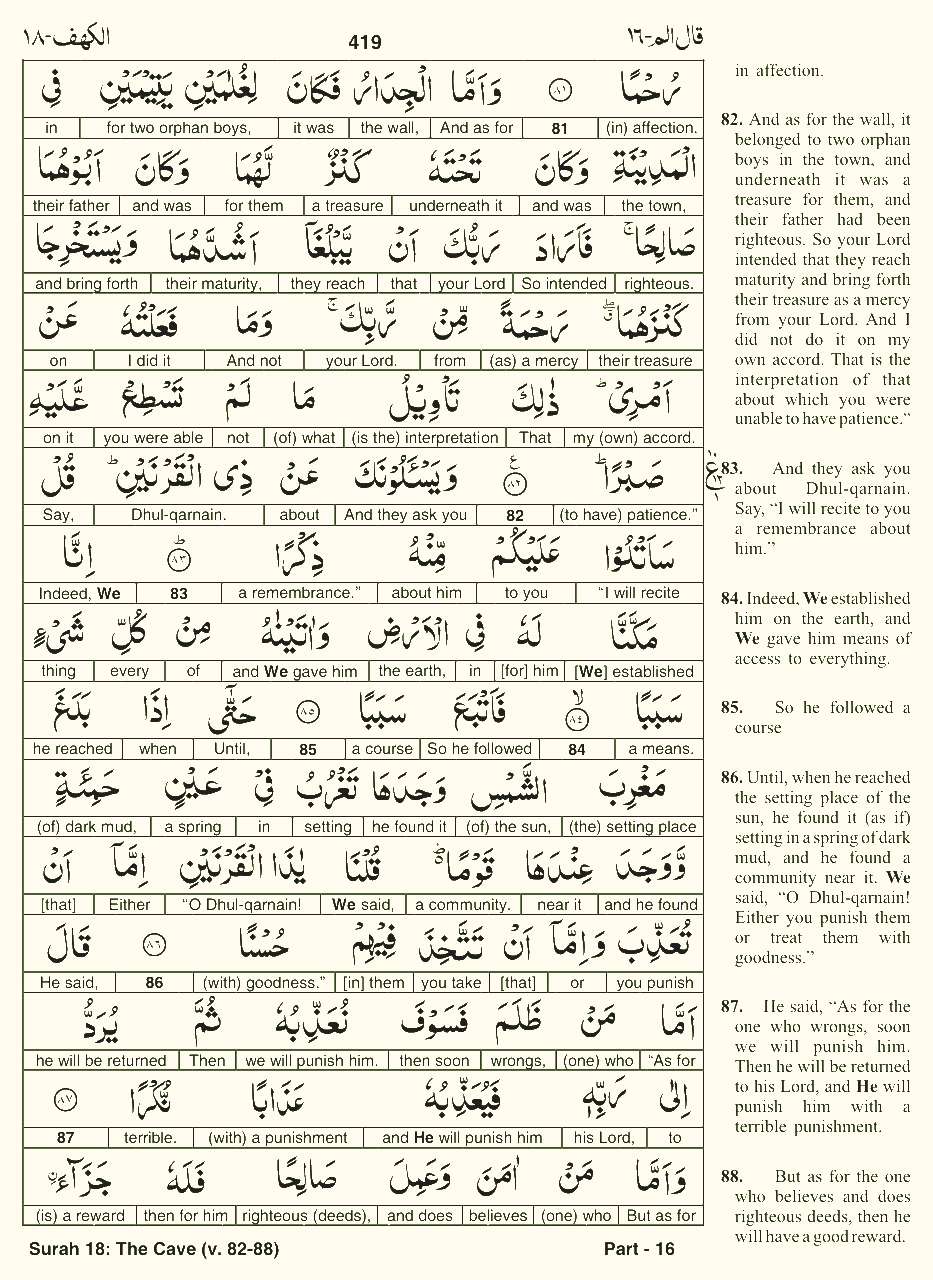 الكهف-١٨ 419 قال الم-١٦
رُحْمًا ۝٨١ وَاَمَّا الْجِدَارُ فَكَانَ لِغُلٰمَيْنِ يَتِيْمَيْنِ فِى
in for two orphan boys, it was the wall, And as for 81 (in) affection.
الْمَدِيْنَةِ وَكَانَ تَحْتَهٗ كَنْزٌ لَّهُمَا وَكَانَ اَبُوْهُمَا
their father and was for them a treasure underneath it and was the town,
صَالِحًا ۚ فَاَرَادَ رَبُّكَ اَنْ يَّبْلُغَاۤ اَشُدَّهُمَا وَيَسْتَخْرِجَا
and bring forth their maturity, they reach that your Lord So intended righteous.
كَنْزَهُمَا ۖ رَحْمَةً مِّنْ رَّبِّكَ ۚ وَمَا فَعَلْتُهٗ عَنْ
on I did it And not your Lord. from (as) a mercy their treasure
اَمْرِىْ ؕ ذٰلِكَ تَاْوِيْلُ مَا لَمْ تَسْطِعْ عَّلَيْهِ
on it you were able not (of) what (is the) interpretation That my (own) accord.
صَبْرًا ؕ ۝٨٢ وَيَسْـَٔلُوْنَكَ عَنْ ذِى الْقَرْنَيْنِ ؕ قُلْ
Say, Dhul-qarnain. about And they ask you 82 (to have) patience.”
سَاَتْلُوْا عَلَيْكُمْ مِّنْهُ ذِكْرًا ؕ ۝٨٣ اِنَّا
Indeed, We 83 a remembrance.” about him to you “I will recite
مَكَّنَّا لَهٗ فِى الْاَرْضِ وَاٰتَيْنٰهُ مِنْ كُلِّ شَىْءٍ
thing every of and We gave him the earth, in [for] him [We] established
سَبَبًا ۙ ۝٨٤ فَاَتْبَعَ سَبَبًا ۝٨٥ حَتّٰٓى اِذَا بَلَغَ
he reached when Until, 85 a course So he followed 84 a means.
مَغْرِبَ الشَّمْسِ وَجَدَهَا تَغْرُبُ فِىْ عَيْنٍ حَمِئَةٍ
(of) dark mud, a spring in setting he found it (of) the sun, (the) setting place
وَّوَجَدَ عِنْدَهَا قَوْمًا ۬ؕ قُلْنَا يٰذَا الْقَرْنَيْنِ اِمَّاۤ اَنْ
[that] Either “O Dhul-qarnain! We said, a community. near it and he found
تُعَذِّبَ وَاِمَّاۤ اَنْ تَتَّخِذَ فِيْهِمْ حُسْنًا ۝٨٦ قَالَ
He said, 86 (with) goodness.” [in] them you take [that] or you punish
اَمَّا مَنْ ظَلَمَ فَسَوْفَ نُعَذِّبُهٗ ثُمَّ يُرَدُّ
he will be returned Then we will punish him. then soon wrongs, (one) who “As for
اِلٰى رَبِّهٖ فَيُعَذِّبُهٗ عَذَابًا نُّكْرًا ۝٨٧
87 terrible. (with) a punishment and He will punish him his Lord, to
وَاَمَّا مَنْ اٰمَنَ وَعَمِلَ صَالِحًا فَلَهٗ جَزَآءَ ۨ
(is) a reward then for him righteous (deeds), and does believes (one) who But as for
in affection.
82. And as for the wall, it
belonged to two orphan
boys in the town, and
underneath it was a
treasure for them, and
their father had been
righteous. So your Lord
intended that they reach
maturity and bring forth
their treasure as a mercy
from your Lord. And I
did not do it on my
own accord. That is the
interpretation of that
about which you were
unable to have patience.“
83. And they ask you
about Dhul-qarnain.
Say, “I will recite to you
a remembrance about
him.”
84. Indeed, We established
him on the earth, and
We gave him means of
access to everything.
85. So he followed a
course
86. Until, when he reached
the setting place of the
sun, he found it (as if)
setting in a spring of dark
mud, and he found a
community near it. We
said, “O Dhul-qarnain!
Either you punish them
or treat them with
goodness.”
87. He said, “As for the
one who wrongs, soon
we will punish him.
Then he will be returned
to his Lord, and He will
punish him with a
terrible punishment.
88. But as for the one
who believes and does
righteous deeds, then he
will have a good reward.
Surah 18: The Cave (v. 82-88) Part - 16